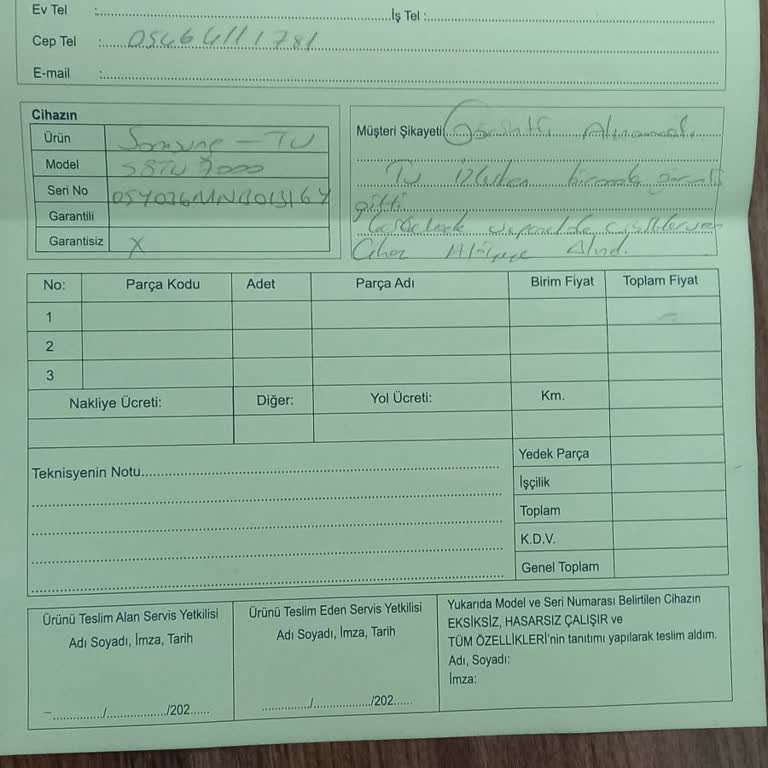 Ev Tel :
İş Tel :
Cep Tel : 05464111781
E-mail :
Cihazın
Ürün Samsung - TV
Model 7000
Seri No
Garantili
Garantisiz X
Müşteri Şikayeti Görüntü Alınamadı.
TV izlerken
gitti
Cihaz Atölyeye Alındı.
No: Parça Kodu Adet Parça Adı Birim Fiyat Toplam Fiyat
1
2
3
Nakliye Ücreti: Diğer: Yol Ücreti: Km.
Yedek Parça
Teknisyenin Notu
İşçilik
Toplam
K.D.V.
Genel Toplam
Ürünü Teslim Alan Servis Yetkilisi
Adı Soyadı, İmza, Tarih
............../................/202......
Ürünü Teslim Eden Servis Yetkilisi
Adı Soyadı, İmza, Tarih
............../................/202......
Yukarıda Model ve Seri Numarası Belirtilen Cihazın
EKSİKSİZ, HASARSIZ ÇALIŞIR ve
TÜM ÖZELLİKLERİ'nin tanıtımı yapılarak teslim aldım.
Adı, Soyadı:
İmza: